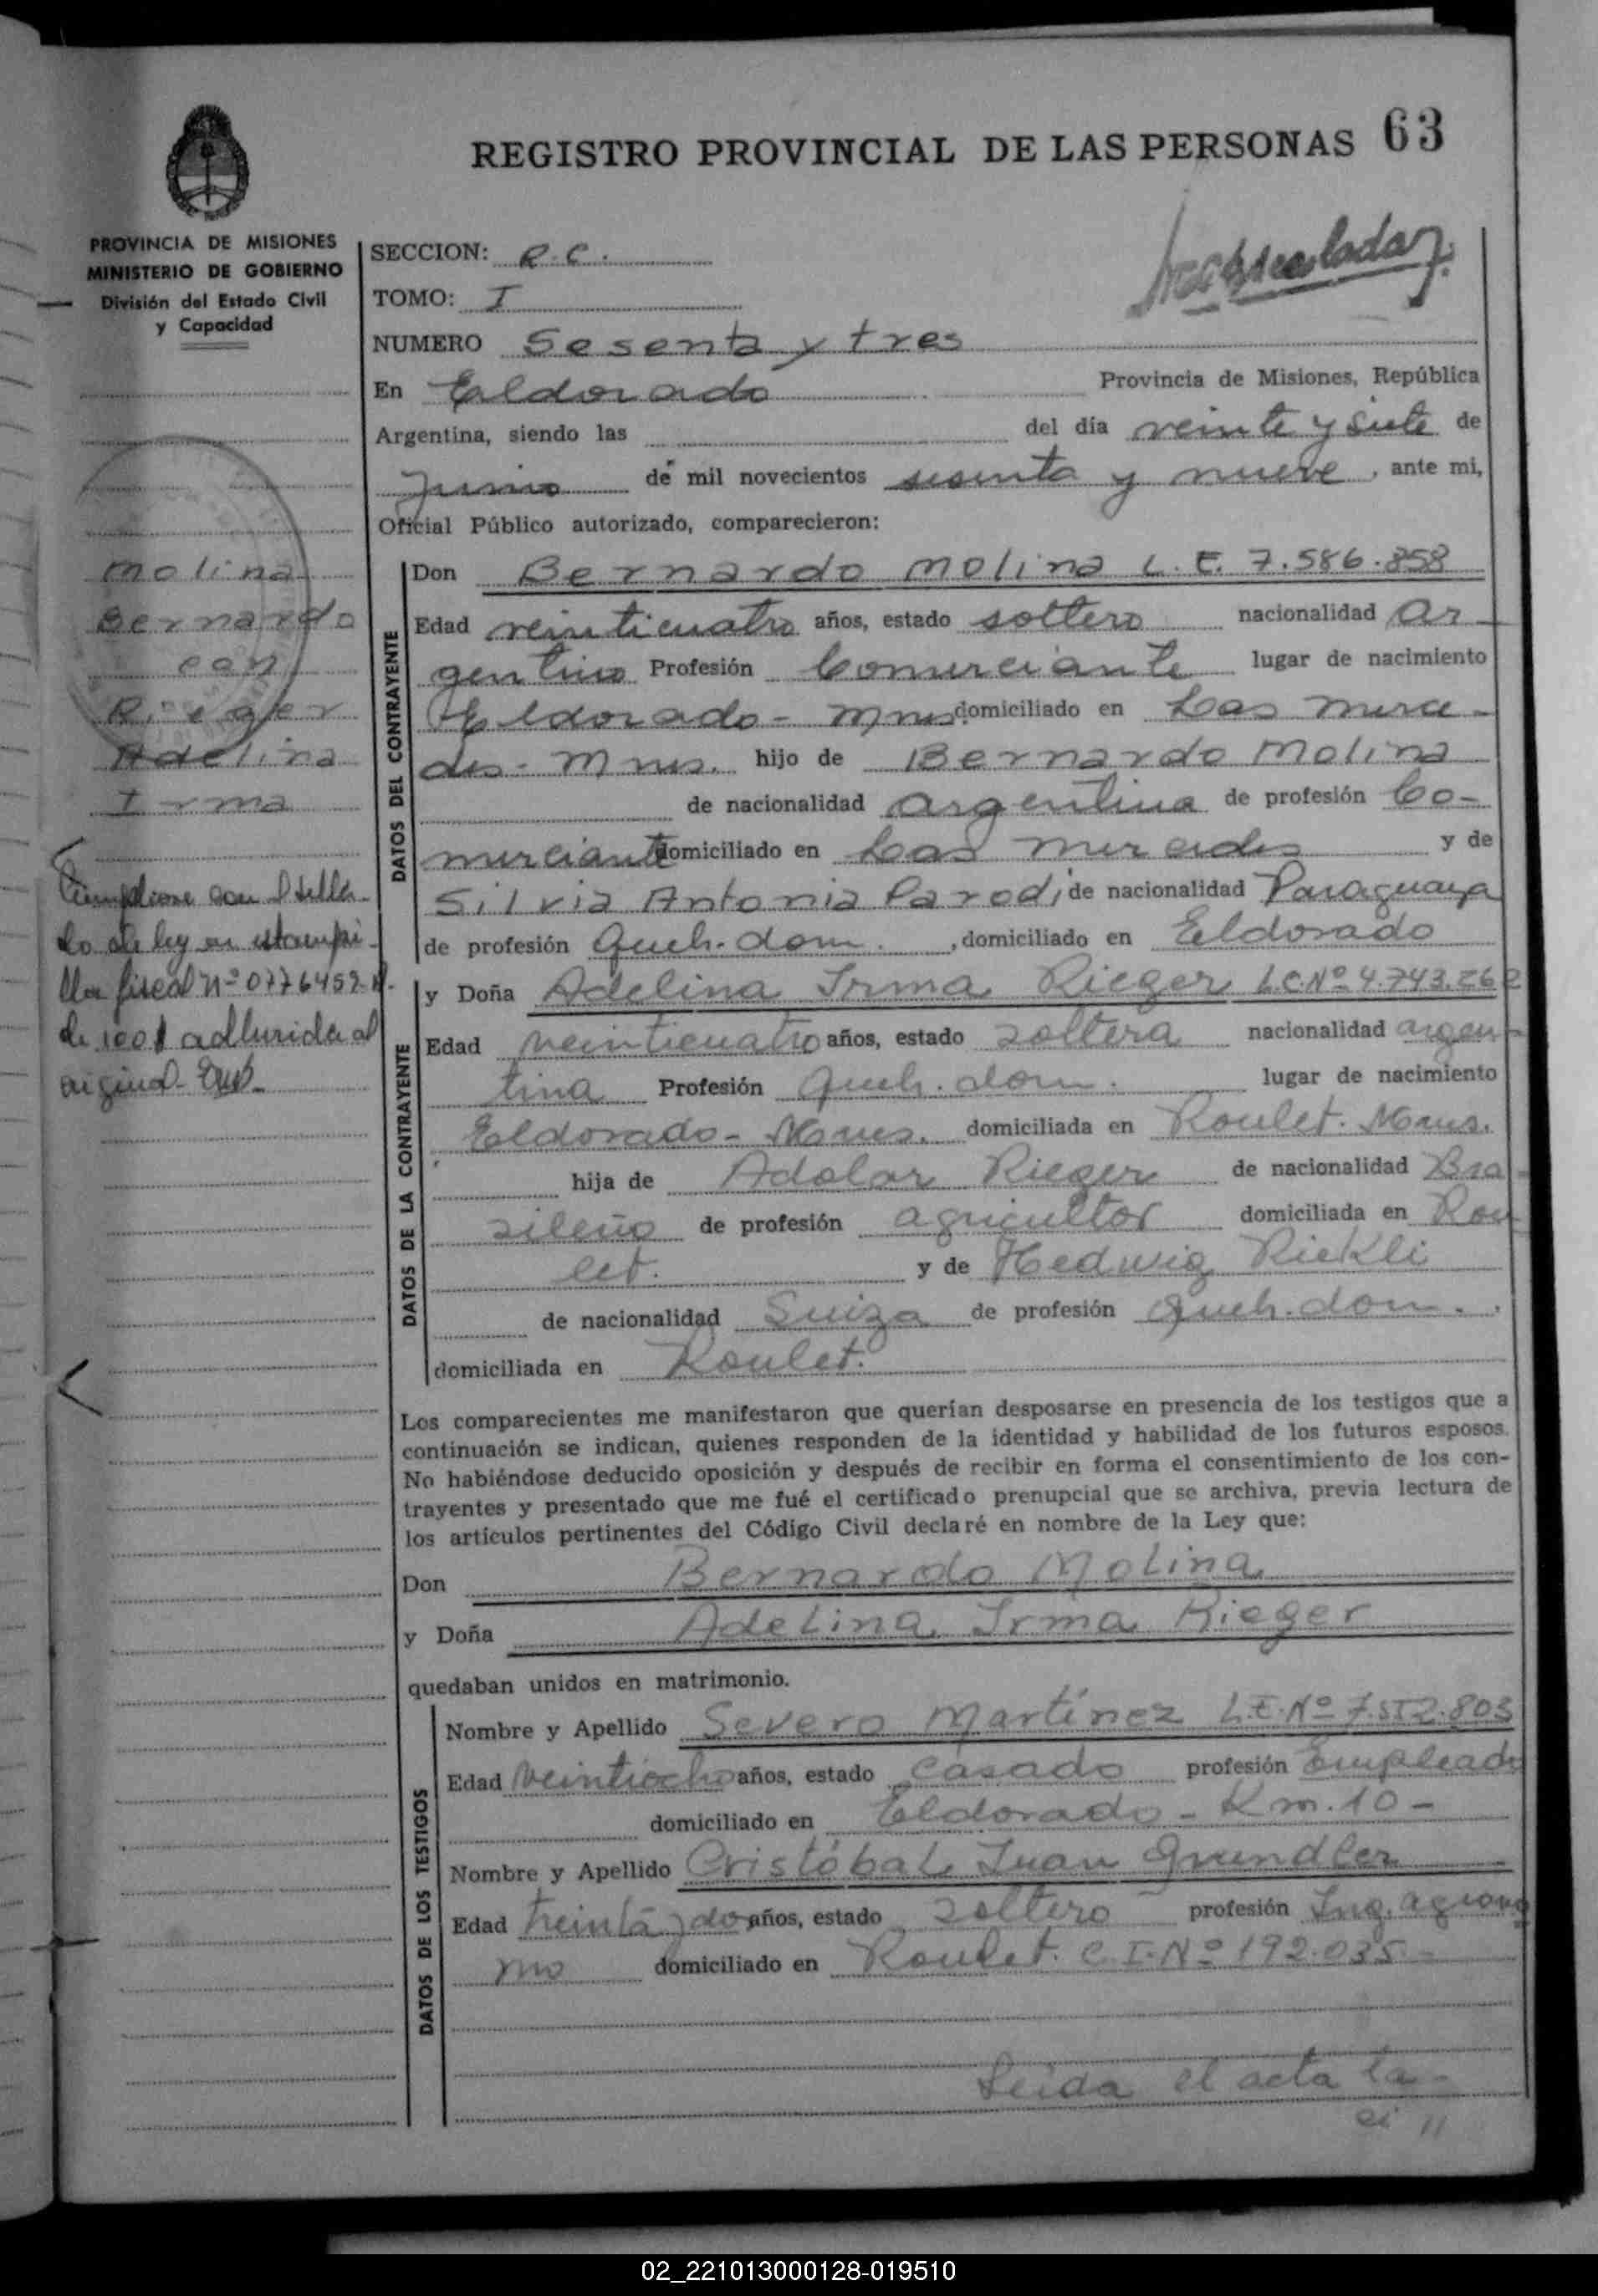 REGISTRO PROVINCIAL DE LAS PERSONAS 63
PROVINCIA DE MISIONES
MINISTERIO DE GOBIERNO
División del Estado Civil
y Capacidad
SECCION: R.C.
TOMO: I
NUMERO Sesenta y tres
En Eldorado Provincia de Misiones, República
Argentina, siendo las del día veinte y siete de
Junio de mil novecientos sesenta y nueve, ante mi,
Oficial Público autorizado, comparecieron:
Molina
Bernardo
con
Rieger
Adelina
Irma
Cumplione con Sella-
do de ley en estampi-
lla fiscal nº 0776459
de 100$ adherida al
original-
DATOS DEL CONTRAYENTE
Don Bernardo Molina L.E. 7.586.858
Edad veinticuatro años, estado soltero nacionalidad Ar
gentino Profesión Comerciante lugar de nacimiento
Eldorado - Mnes domiciliado en Las Merce-
des - Mnes. hijo de Bernardo Molina
de nacionalidad argentina de profesión Co-
merciante domiciliado en Las Mercedes y de
Silvia Antonia Parodi de nacionalidad Paraguaya
de profesión Queh. dom. , domiciliado en Eldorado
DATOS DE LA CONTRAYENTE
y Doña Adelina Irma Rieger L.C.Nº 4.743.262
Edad veinticuatro años, estado soltera nacionalidad argen-
tina Profesión Queh. dom. lugar de nacimiento
Eldorado - Mnes. domiciliada en Roulet. Mnes.
hija de Adolar Rieger de nacionalidad Bra-
sileño de profesión agricultor domiciliada en Rou-
let. y de Hedwig Rickli
de nacionalidad Suiza de profesión Queh. dom.
domiciliada en Roulet.
Los comparecientes me manifestaron que querían desposarse en presencia de los testigos que a
continuación se indican, quienes responden de la identidad y habilidad de los futuros esposos.
No habiéndose deducido oposición y después de recibir en forma el consentimiento de los con-
trayentes y presentado que me fué el certificado prenupcial que se archiva, previa lectura de
los artículos pertinentes del Código Civil declaré en nombre de la Ley que:
Don Bernardo Molina
y Doña Adelina Irma Rieger
quedaban unidos en matrimonio.
DATOS DE LOS TESTIGOS
Nombre y Apellido Severo Martínez L.E.Nº 7.552.803
Edad veintiocho años, estado casado profesión Empleado
domiciliado en Eldorado - Km. 10 -
Nombre y Apellido Cristóbal Juan Grundler
Edad treinta y dos años, estado soltero profesión Ing. agrono
mo domiciliado en Roulet. C.I.Nº 192.035 -
Leida el acta la-
02_221013000128-019510